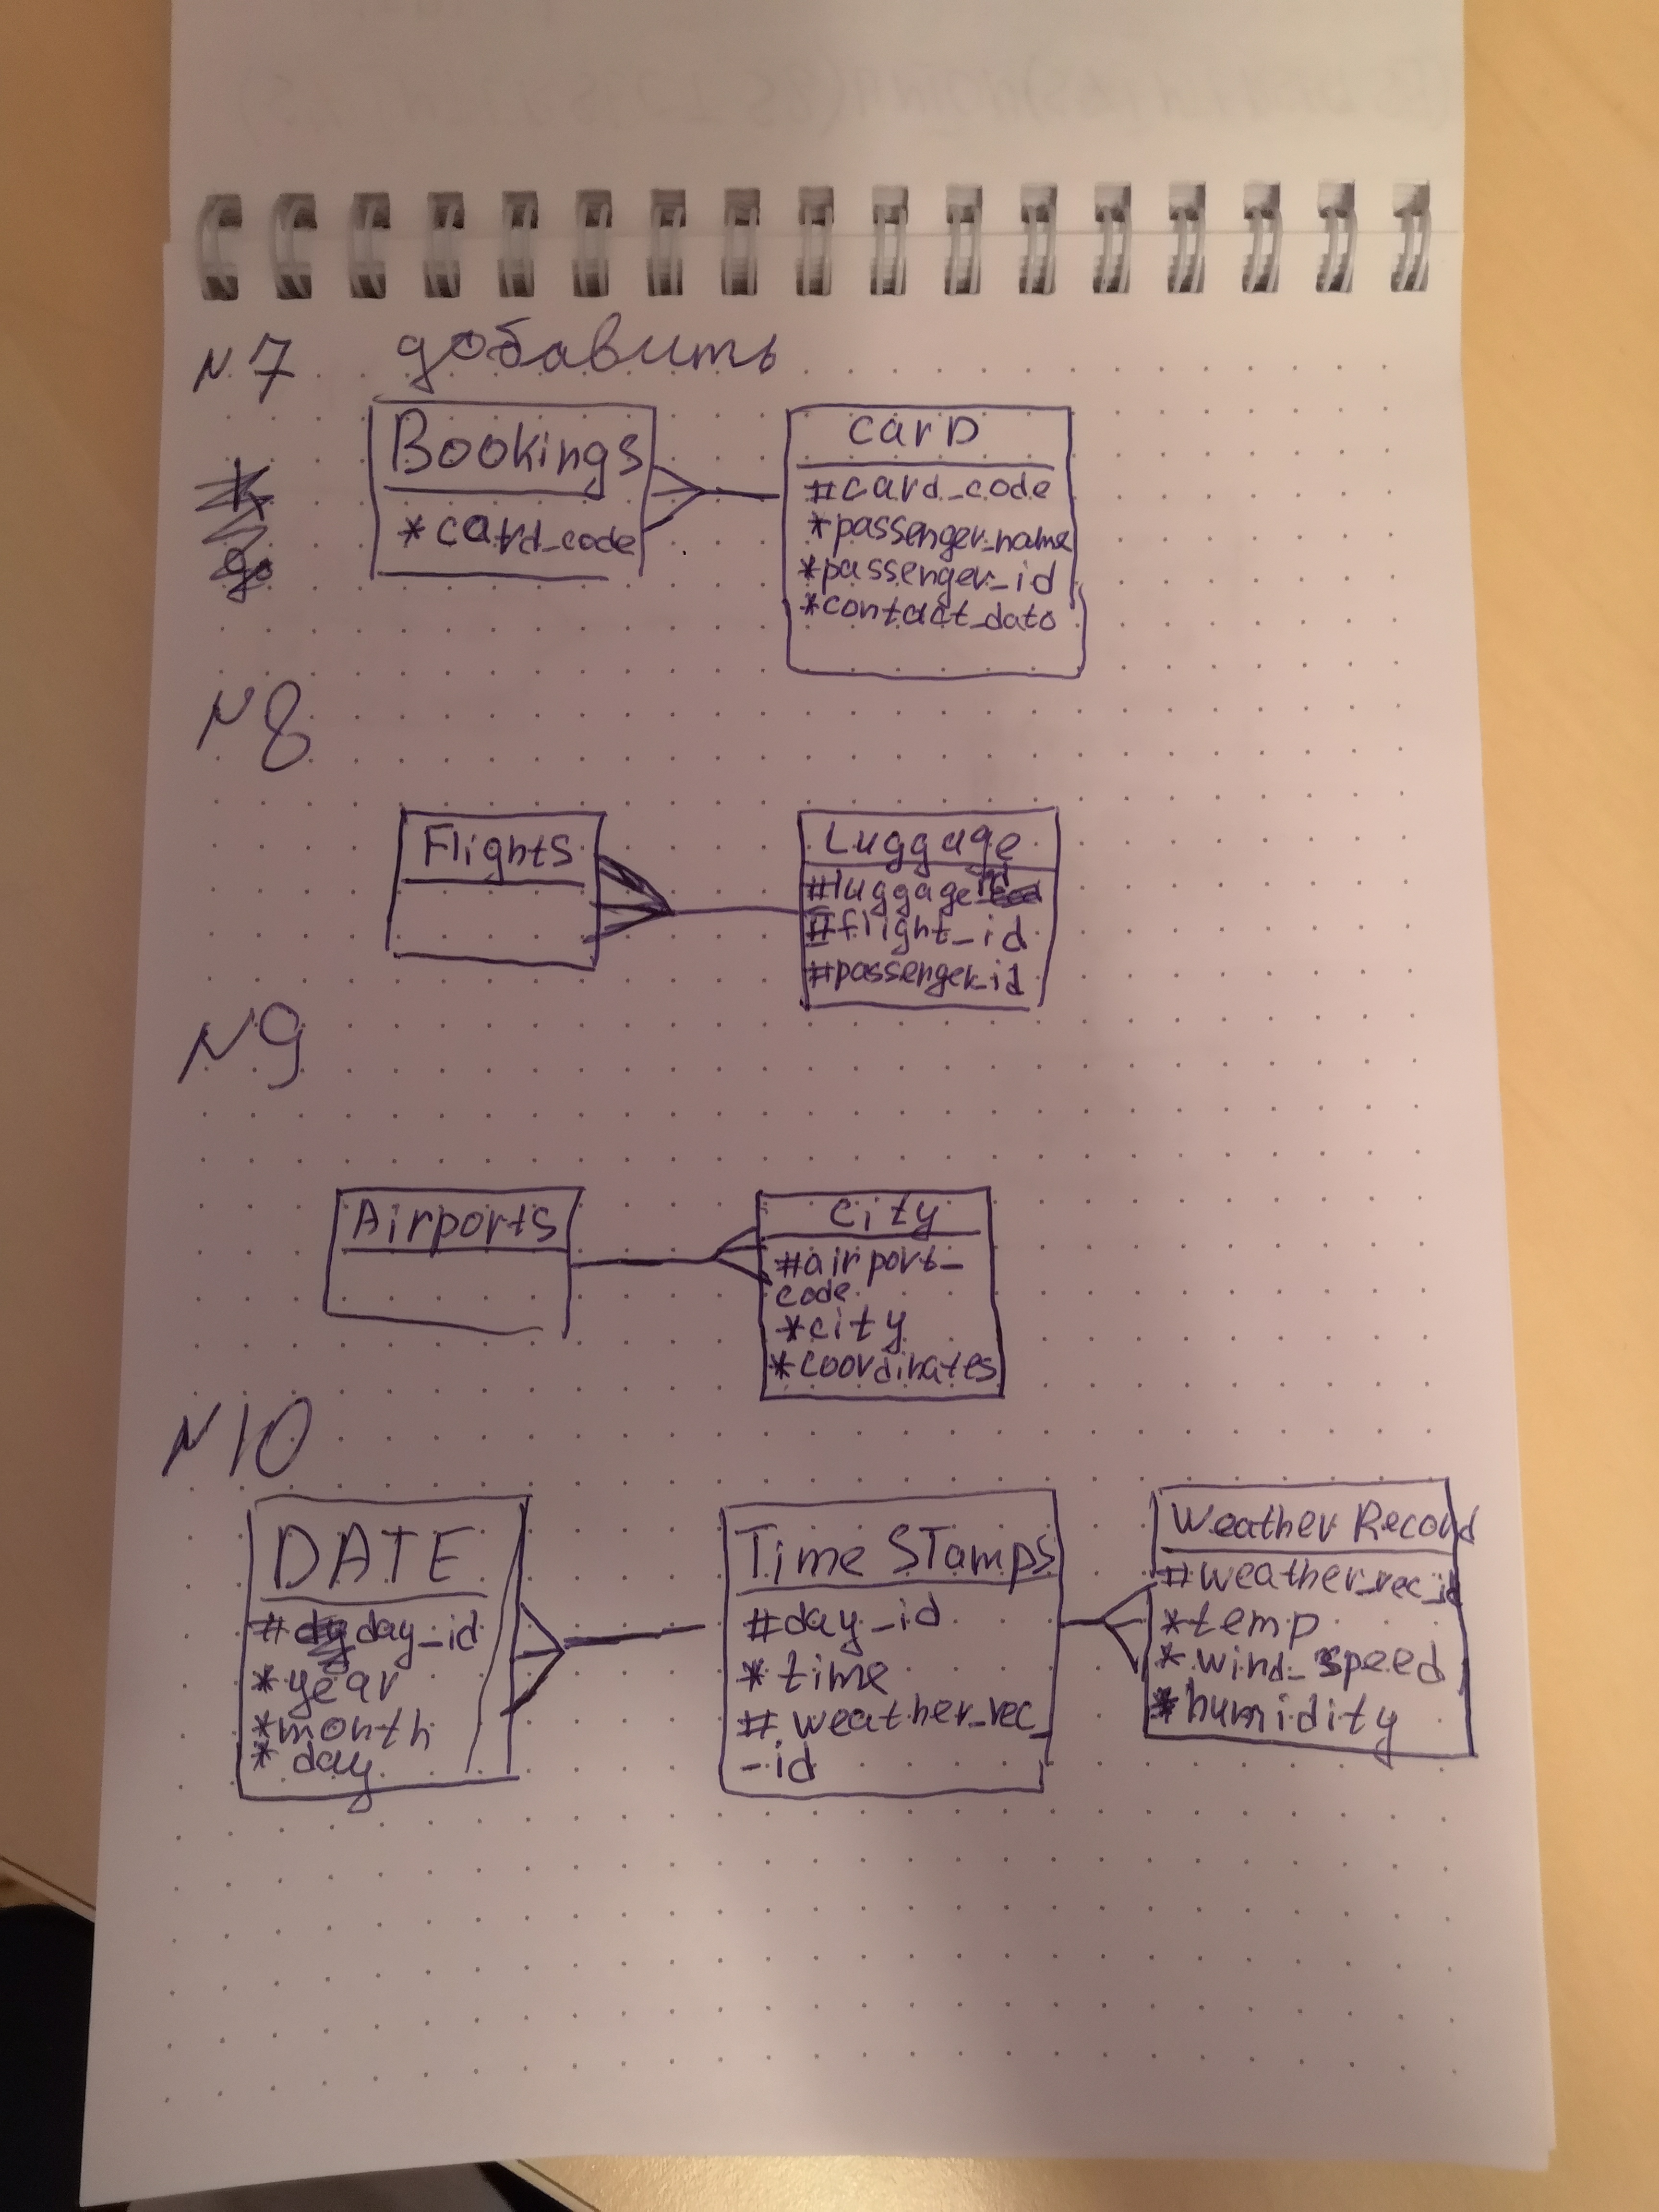 N7 добавить
Bookings
*card_code
carD
#card_code
*passenger_name
*passenger_id
*contact_data
N8
Flights
Luggage
#luggage_id
#flight_id
#passenger_id
N9
Airports
city
#airport_
code
*city
*coordinates
N10
DATE
#day_id
*year
*month
*day
Time STamps
#day_id
*time
#weather_rec_
-id
Weather Record
#weather_rec_id
*temp
*wind_speed
*humidity